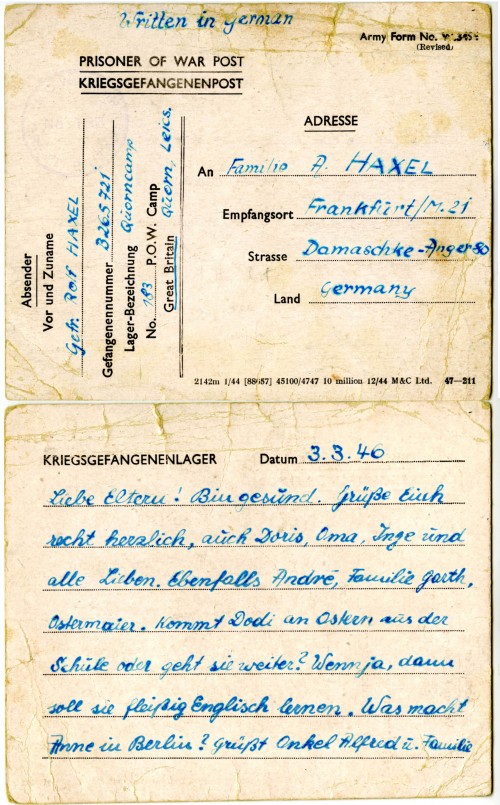 Written in German
Army Form No.
(Revised)
PRISONER OF WAR POST
KRIEGSGEFANGENENPOST
ADRESSE
An Familie A. HAXEL
Empfangsort Frankfurt/M. 21
Strasse Damaschke-Anger 80
Land Germany
Absender
Vor und Zuname
Gefr. Rolf HAXEL
Gefangenennummer 3265721
Lager-Bezeichnung Quorncamp
No. 183 P.O.W. Camp
Great Britain Quorn, Leics.
2142m 1/44 [88657] 45100/4747 10 million 12/44 M&C Ltd. 47—211
KRIEGSGEFANGENENLAGER Datum 3.3.46
Liebe Eltern! Bin gesund. Grüße Euch
recht herzlich, auch Doris, Oma, Inge und
alle Lieben. Ebenfalls André, Familie Garth,
Ostermaier. Kommt Dodi an Ostern aus der
Schule oder geht sie weiter? Wenn ja, dann
soll sie fleißig Englisch lernen. Was macht
Anne in Berlin? Grüßt Onkel Alfred u. Familie